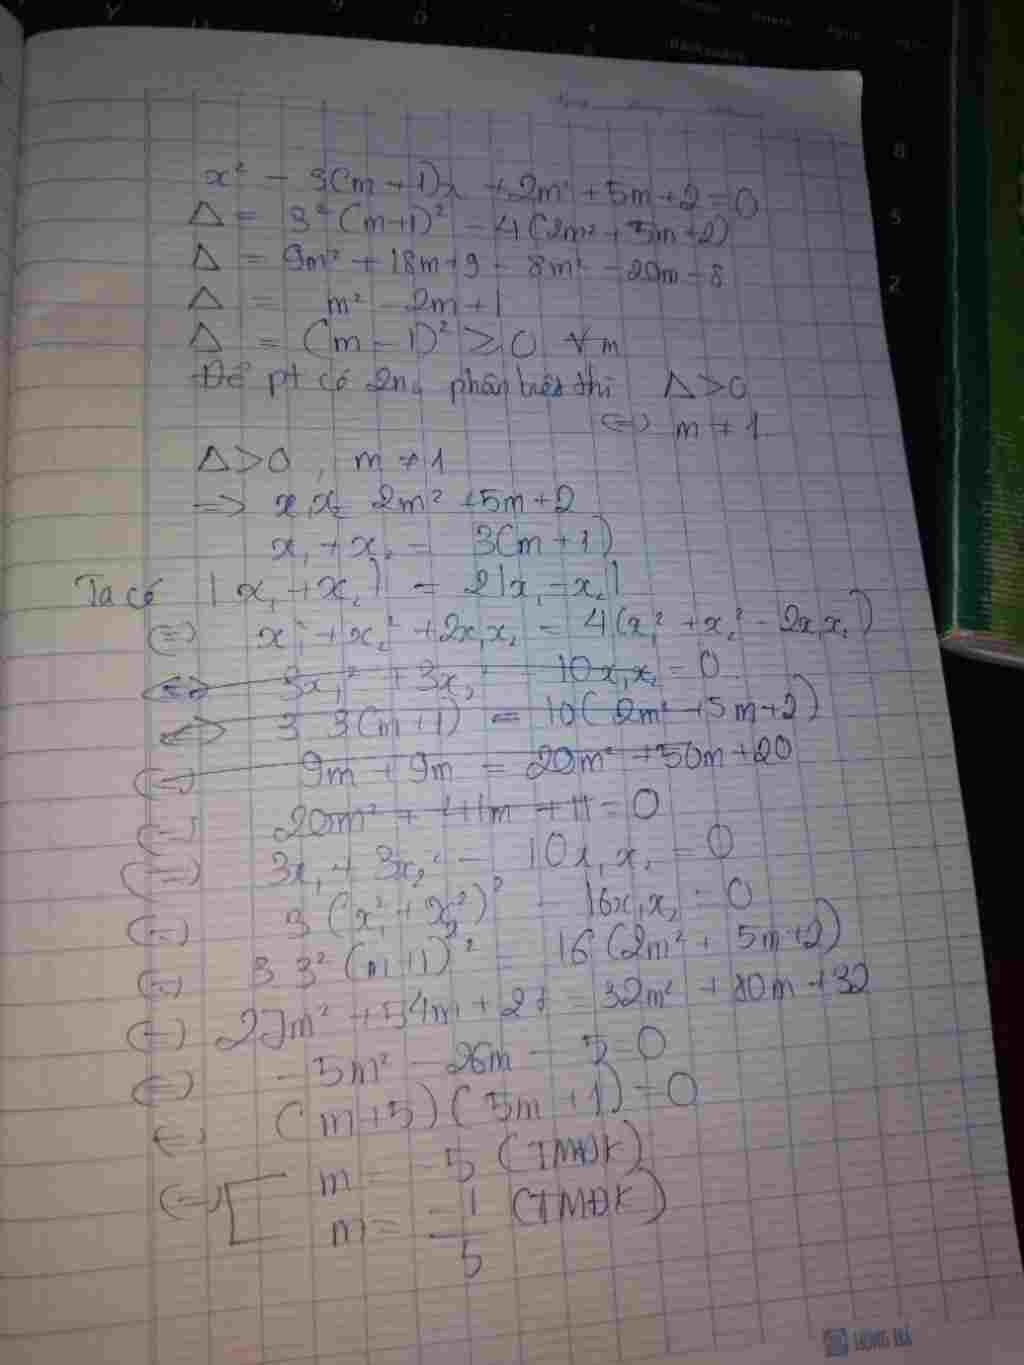 x² - 3(m+1)x + 2m² + 5m + 2 = 0
Δ = 3²(m+1)² - 4(2m² + 5m + 2)
Δ = 9m² + 18m + 9 - 8m² - 20m - 8
Δ = m² - 2m + 1
Δ = (m - 1)² ≥ 0 ∀m
Để pt có 2n₀ phân biệt thì Δ > 0
<=> m ≠ 1
Δ > 0, m ≠ 1
=> x₁x₂ = 2m² + 5m + 2
x₁ + x₂ = 3(m+1)
Ta có |x₁ + x₂| = 2|x₁ - x₂|
<=> x₁² + x₂² + 2x₁x₂ = 4(x₁² + x₂² - 2x₁x₂)
<=> 3x₁² + 3x₂² - 10x₁x₂ = 0
<=> 3 3(m+1) = 10(2m² + 5m + 2)
<=> 9m + 9m = 20m² + 50m + 20
<=> 20m² + 41m + 11 = 0
<=> 3x₁² + 3x₂² - 10x₁x₂ = 0
<=> 3(x₁² + x₂²)² - 16x₁x₂ = 0
<=> 3 3²(m+1)² = 16(2m² + 5m + 2)
<=> 27m² + 54m + 27 = 32m² + 80m + 32
<=> -5m² - 26m - 5 = 0
<=> (m+5)(5m+1) = 0
<=> [ m = -5 (TMĐK)
m = -1/5 (TMĐK)
HONG HA
8
5
2